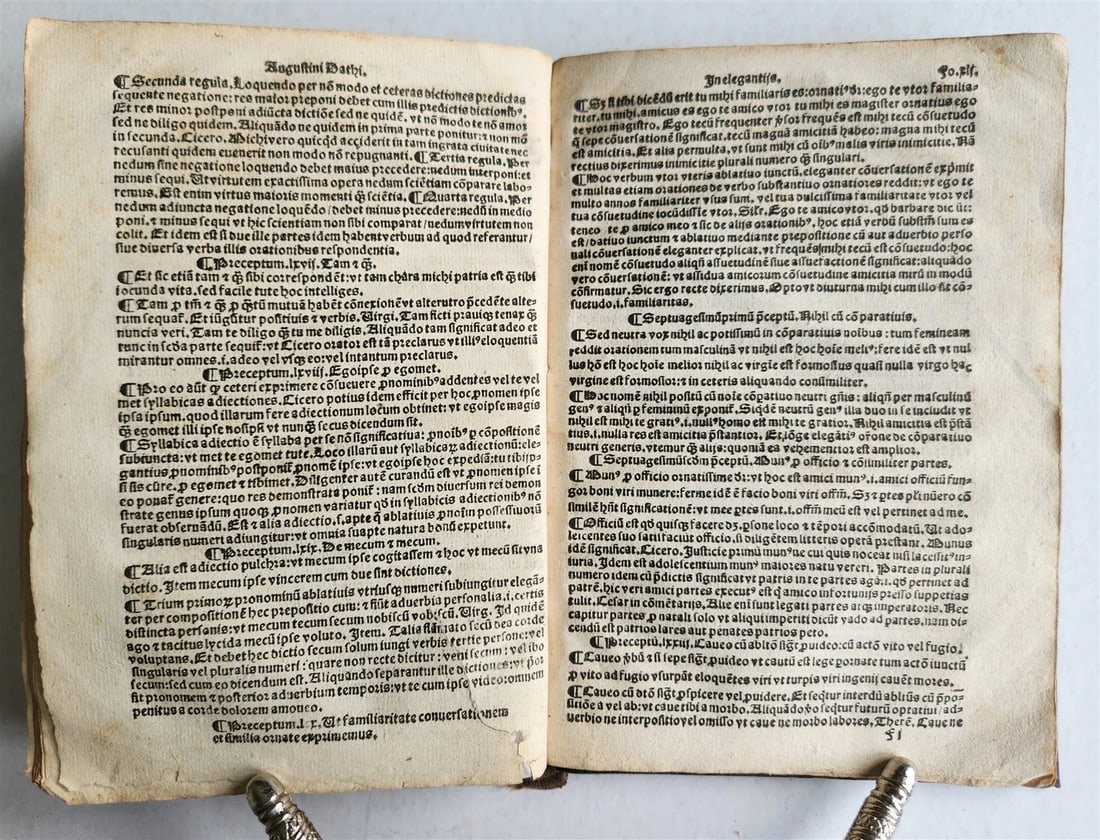 Augustini Dathi.
¶ Secunda regula. Loquendo per nō modo et ceteras dictiones predictas
sequente negatione: res maior preponi debet cum illis predictis dictionibꝰ.
Et res minor postponi adiūcta dictiōe sed ne quidē. vt nō modo te nō amo
sed ne diligo quidem. Aliquādo ne quidem in prima parte ponitur: ⁊ non mō
in secunda. Cicero. Michi vero quicqd acciderit in tam ingrata ciuitate nec
recusanti quidem euenerit non modo nō repugnanti. ¶ Tertia regula. Per
nedum sine negatione loquendo debet maius precedere: nedum interponi: et
minus sequi. Ut virtutem exactissima opera nedum sciētiam cōparare labo-
remus. Est enim virtus maioris momenti q̄ sciētia. ¶ Quarta regula. Per
nedum adiuncta negatione loquēdo / debet minus precedere: nedū in medio
poni. ⁊ minus sequi vt hic scientiam non sibi comparat / nedum virtutem non
colit. Et idem est si due ille partes idem habent verbum ad quod referantur /
siue diuersa verba illis orationibus respondentia.
¶ Preceptum. lxvij. Tam ⁊ q̄.
¶ Et sic etiā tam ⁊ q̄ sibi correspondēt: vt tam chara michi patria est q̄ tibi
iocunda vita. sed facile tute hoc intelliges.
¶ Tam ꝓ tm̄ ⁊ q̄ ꝓ q̄tū mutuā habēt cōnexionē vt alterutro p̄cedēte alte-
rum sequať. Et iūgūtur positiuis ⁊ verbis. Virgi. Tam ficti prauiqꝫ tenax q̄
nuncia veri. Tam te diligo q̄ tu me diligis. Aliquādo tam significat adeo et
tunc in scd̄a parte sequiť: vt Cicero orator est tā preclarus vt illiꝰ eloquentiā
mirantur omnes. i. adeo vel vsqꝫ eo: vel intantum preclarus.
¶ Preceptum. lxviij. Egoipse ꝓ egomet.
¶ Pro eo aūt q̄ ceteri exprimere cōsueuere ꝓnominibꝰ addentes vel te vel
met syllabicas adiectiones. Cicero potius idem efficit per hoc ꝓnomen ipse
ipsa ipsum. quod illarum fere adiectionum locum obtinet: vt egoipse magis
q̄ egomet illi ipse nosipsi vt nunq̄ secus dicendum sit.
¶ Syllabica adiectio ē syllaba per se nō significatiua: ꝓnoībꝰ ꝑ cōpositionē
subiuncta: vt met te egomet tute. Loco illarū aut syllabicaꝝ adiectionū: ele-
gantius ꝓnominibꝰ postponiť ꝓnomē ipse: vt egoipse hoc expediā: tu tibi ip-
si sis cūre. ꝓ egomet ⁊ tibimet. Diligenter autē curandū est vt ꝓnomen ipse ī
eo ponať genere: quo res demonstrata poniť: nam scd̄m diuersum rei demon
strate genus ipsum quoqꝫ ꝓnomen variatur qd̄ in syllabicis adiectionibꝰ nō
fuerat obseruādū. Est ⁊ alia adiectio. s. apte q̄ ablatiuis ꝓnoīm possessiuoꝝ
singularis numeri adiungitur: vt omnia suapte natura bonū expetunt.
¶ Preceptum. lxix. De mecum ⁊ mecum.
¶ Alia est adiectio pulchra: vt mecum ipse cogitassem ⁊ hoc vt mecū sit vna
dictio. Item mecum ipse vincerem cum due sint dictiones.
¶ Trium primoꝝ pronominū ablatiuis vtriusqꝫ numeri subiungitur elegā-
ter per compositionē hec prepositio cum: ⁊ fiūt aduerbia personalia. i. certis
distincta personis: vt mecum tecum secum nobiscū vobiscū. Virg. Id quidē
ago ⁊ tacitus lycida mecū ipse voluto. Item. Talia flāmato secū dea corde
voluptans. Et debet hec dictio secum solum iungi verbis tertie persone: vel
singularis vel pluralis numeri: quare non recte dicitur: veni secum: vel ibo
secum: sed cum eo dicendum est. Aliquando separantur ille dictiones: vt prior
sit pronomen ⁊ posterior aduerbium temporis: vt te cum ipse video: omnem
penitus a corde dolorem amoueo.
¶ Preceptum. lxx. Ut familiaritate conuersationem
et similia ornate exprimemus.
In elegantijs. Fo. xlj.
¶ Sꝫ si tibi dicēdū erit tu mihi familiaris es: ornatiꝰ dr̄: ego te vtor familia-
riter. tu mihi amicus es ego te amico vtor tu mihi es magister ornatius ego
te vtor magistro. Ego tecū frequenter sor frequēs est mihi tecū cōsuetudo
q̄ sepe cōuersationē significat. tecū magnā amicitiā habeo: magna mihi tecū
est amicitia. Et alia permulta. vt sunt mihi cū oībꝰ malis viris inimicitie. Nā
rectius dixerimus inimicitie plurali numero q̄ singulari.
¶ Hoc verbum vtor vteris ablatiuo iunctū. eleganter cōuersationē exp̄mit
et multas etiam orationes de verbo substantiuo ornatiores reddit: vt ego te
multo annos familiariter vsus sum. vel tua dulcissima familiaritate vtor vel
tua cōsuetudine iocūdissie vtor. Silr̄. Ego te amico vtor. qd̄ barbare dic̄ūt:
teneo te ꝓ amico meo ⁊ sic de alijs orationibꝰ. hoc etiā verbū substm̄ sum es
est / datiuo iunctum ⁊ ablatiuo mediante prepositione cū aut aduerbio perso
nali cōuersationē eleganter explicat. vt frequēs mihi tecū est cōsuetudo: hoc
eni nomē cōsuetudo aliqn̄ assuetudinē siue assuefactionē significat: aliquādo
vero cōuersationē: vt assidua amicorum cōsuetudine amicitia mirū in modū
cōfirmatur. Sic ergo recte dixerimus. Opto vt diuturna mihi cum illo sit cō-
suetudo. i. familiaritas.
¶ Septuagesimūprimū p̄ceptū. Nihil cū cōparatiuis.
¶ Sed neutra vox nihil ac potissimū in cōparatiuis noībus: tum femineam
reddit orationem tum masculinā vt nihil est hoc hoīe meliꝰ: fere idē est vt nul
lus hō est hoc hoīe melior nihil ac virgīe est formosius quasi nulla virgo hac
virgine est formosior: ⁊ in ceteris aliquando consimiliter.
¶ Hoc nomē nihil positū cū noīe cōpatiuo neutri gn̄is: aliqn̄ per masculinū
genꝰ ⁊ aliqn̄ ꝑ femininū exponiť. Siqdē neutrū genꝰ illa duo in se includit vt
nihil est mihi te gratiꝰ. i. nullꝰ homo est mihi te gratior. Nihil amicitia est p̄stā
tius. i. nulla res est amicitia p̄stantior. Et lōge elegātiꝰ oꝛōne de cōparatiuo
neutri generis. vtemur q̄ alijs: quoniā ea vehementior est amplior.
¶ Septuagesimūscd̄m p̄ceptū. Munꝰ ꝓ officio ⁊ cōsimiliter partes.
¶ Munꝰ ꝓ officio ornatissime dr̄: vt hoc est amici munꝰ. i. amici officiū fun-
gor boni viri munere: ferme idē ē facio boni viri offm̄. Sꝫ ⁊ ptes pl̄i nūero cō
similē hn̄t significationē: vt mee ptes sunt. i. offm̄ meū est vel pertinet ad me.
¶ Officiū est qd̄ quisqꝫ facere dꝫ. ꝓ sone loco ⁊ tēpori accōmodatū. Ut ado-
lescentes suo satisfaciūt officio. si diligētem litteris operā prestant. Munus
idē significat. Cicero. Justicie primū munꝰ ne cui quis noceat nisi lacessitꝰ in-
iuria. Idem est adolescentium munꝰ maiores natu vereri. Partes in plurali
numero idem cū p̄dictis significat vt patris in te partes agā: i. qd̄ pertinet ad
patrē. hic veri amici partes executꝰ est q̄ amico infortunijs presso suppetias
tulit. Cesar in cōmētarijs. Alie eni sunt legati partes atqꝫ imperatoris. Nec
capitur partes ꝓ natali solo vt aliqui imperiti dicūt vado ad partes. nam di-
cendū est patrios lares aut penates patrios peto.
¶ Preceptū. lxxiij. Caueo cū dtō sig̅t ꝓuideo: cū actō vito vel fugio.
¶ Caueo v̄bū ⁊ si sepe sig̅t ꝓuideo vt cautū est lege ꝓornate tum actō iunctū
ꝓ vito ad fugio vsurpāt eloquētes viri vt turpis viri ingenij cauet mores.
¶ Caueo cū dtō sig̅t ꝓspicere vel ꝓuidere. Et seqtur interdū abltūs cū p̄po-
sitiōe a vel ab: vt caue tibi a morbo. Aliquādo ꝟo seqtur futurū optatiui / ad-
uerbio ne interpositio vel omisso vt caue ne morbo labores. Therē. Caue ne
f j